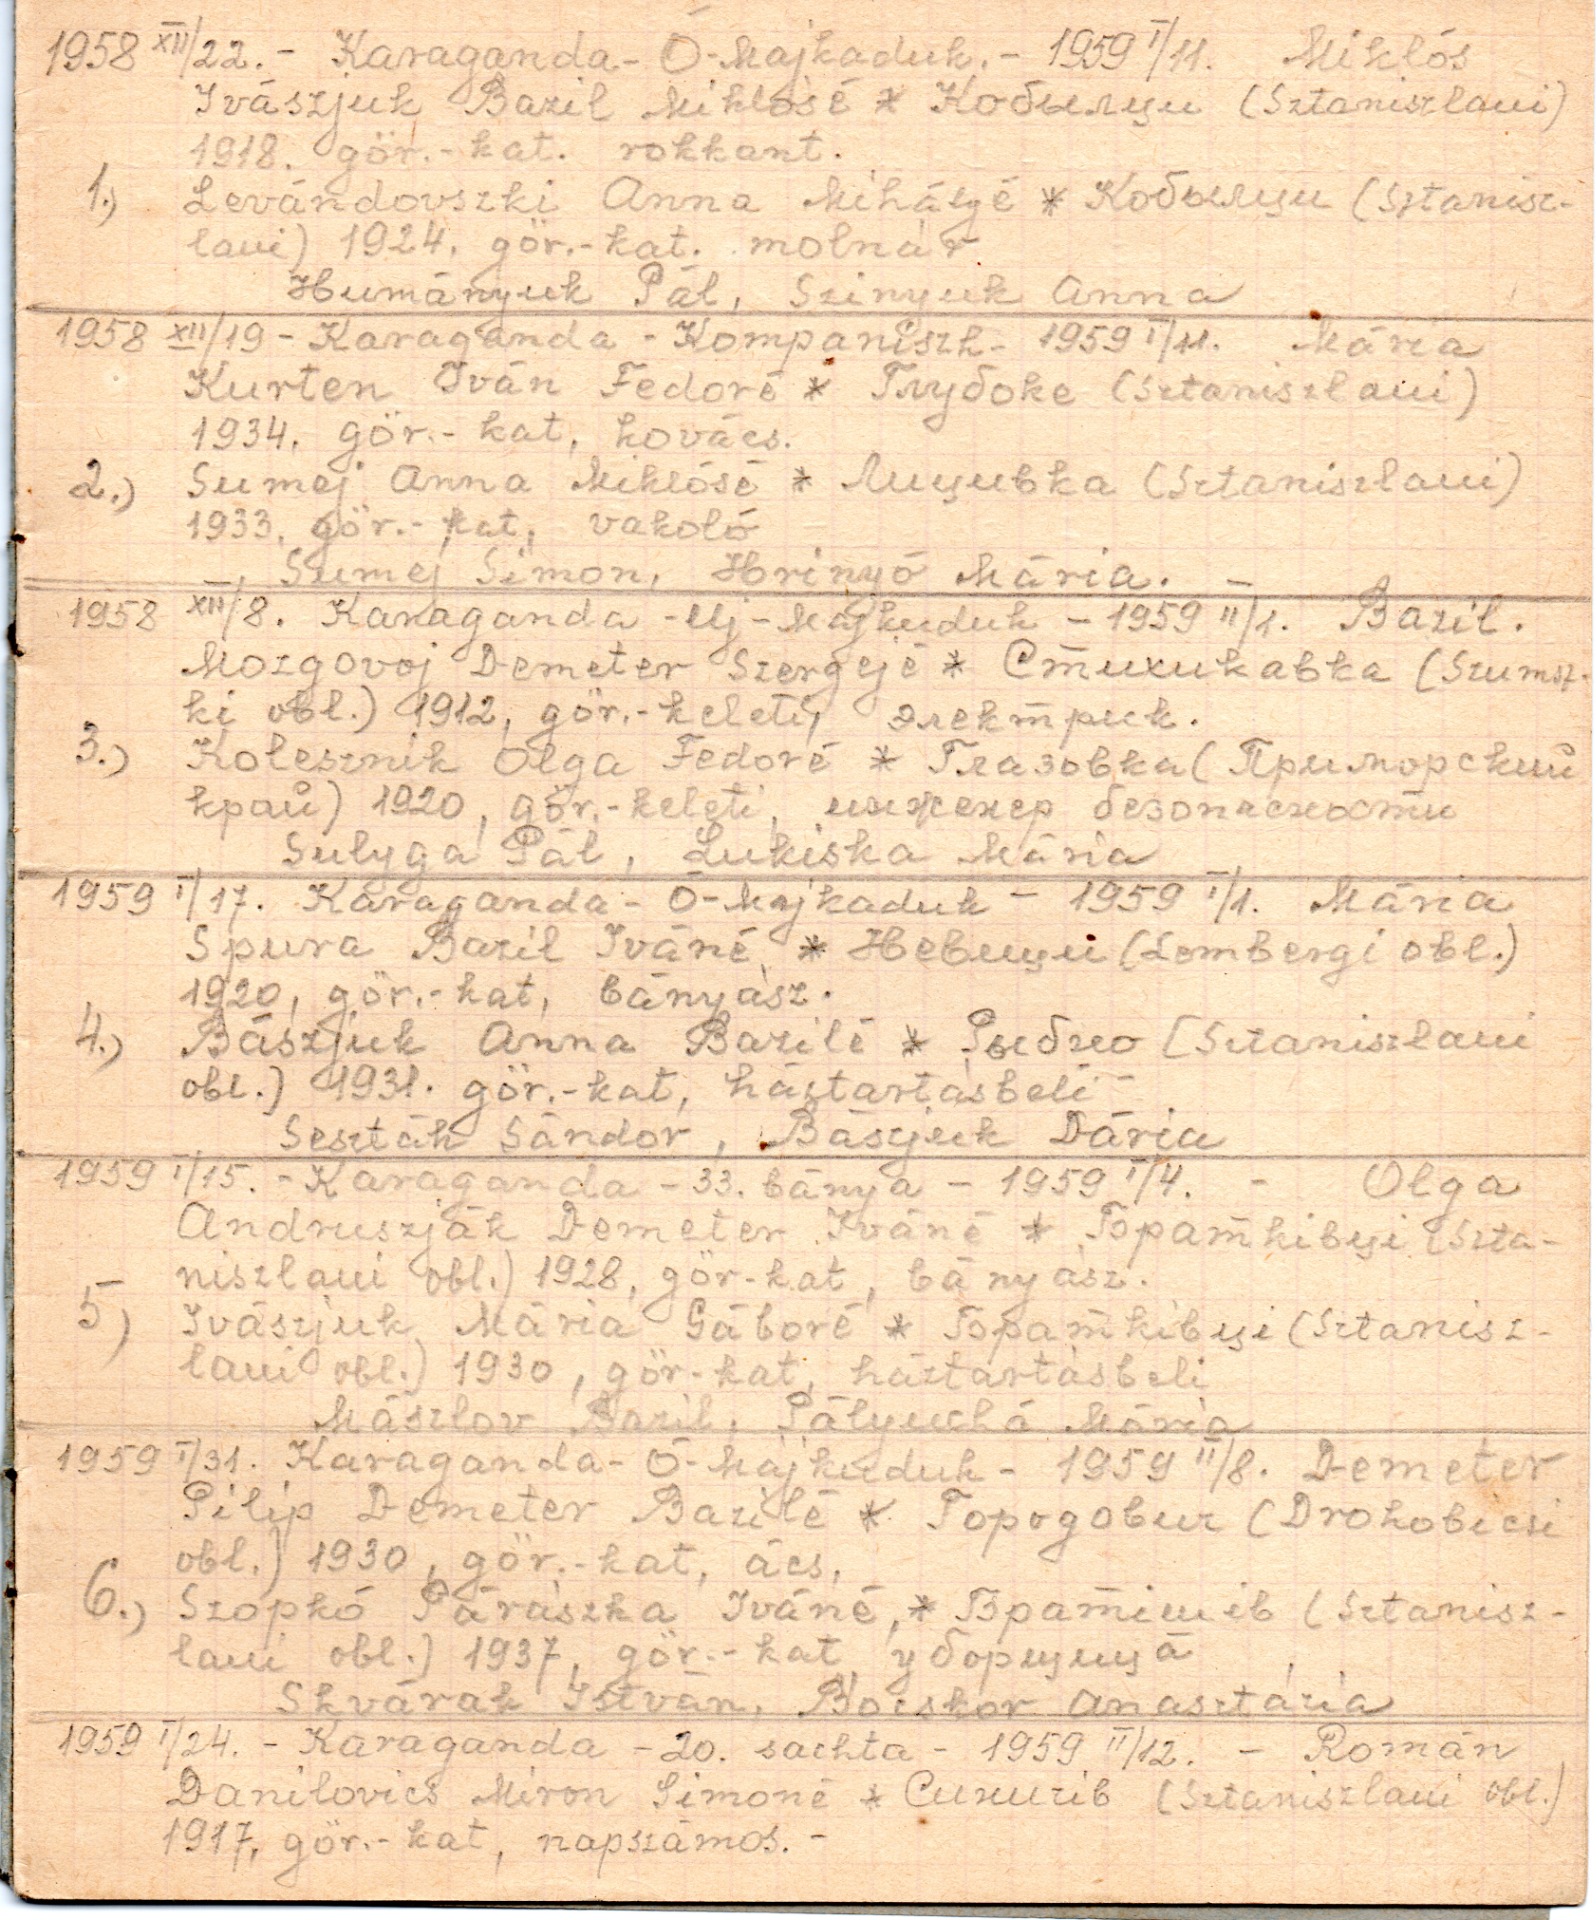 1958 XII/22. - Karaganda - Ó-Majkaduk. - 1959 I/11. Miklós
Ivászjuk Bazil Miklósé * Кобылци (Sztaniszlaui)
1918. gör.-kat. rokkant.
1.) Levándovszki Anna Mihályé * Кобылци (Sztanisz-
laui) 1924. gör.-kat. molnár
Humányuk Pál, Szinyuk Anna
1958 XII/19 - Karaganda - Kompaniszk - 1959 I/11. Mária
Kurten Iván Fedoré * Глубоке (Sztaniszlaui)
1934. gör.-kat, kovács.
2.) Sumej Anna Miklósé * Лицивка (Sztaniszlaui)
1933. gör.-kat, vakoló
Sumej Simon, Hrinyó Mária. -
1958 XII/8. Karaganda - Uj-Majkuduk - 1959 II/1. Bazil.
Mozgovoj Demeter Szergejé * Стихикавка (Szumsz-
ki obl.) 1912, gör.-keleti, электрик.
3.) Kolesznik Olga Fedoré * Глазовка (Приморский
край) 1920, gör.-keleti, инженер безопасности
Sulyga Pál, Lukiska Mária
1959 I/17. Karaganda - Ó-Majkaduk - 1959 I/1. Mária
Spura Bazil Iváné * Невици (Lembergi obl.)
1920, gör.-kat, bányász.
4.) Bászjuk Anna Bazilé * Рыбно (Sztaniszlaui
obl.) 1931. gör.-kat, háztartásbeli -
Seszták Sándor, Bászjuk Dária
1959 I/15. - Karaganda - 33. bánya - 1959 I/4. - Olga
Andruszják Demeter Iváné * Братківці (Szta-
niszlaui obl.) 1928, gör-kat, bányász.
5) Ivászjuk Mária Gáboré * Братківці (Sztanisz-
laui obl.) 1930, gör-kat, háztartásbeli
Mászlov Bazil, Pályuchá Mária
1959 I/31. Karaganda - Ó-Majkuduk - 1959 II/8. Demeter
Pilip Demeter Bazilé * Городович (Drohobicsi
obl.) 1930, gör.-kat, ács,
6.) Szopkó Párászka Iváné, * Братишів (Sztanisz-
laui obl.) 1937, gör.-kat, уборщица
Skvárak István, Bocskor Anasztázia
1959 I/24. - Karaganda - 20. sachta - 1959 II/12. - Román
Danilovics Miron Simoné * Сихичів (Sztaniszlaui obl.)
1917, gör.-kat, napszámos. -